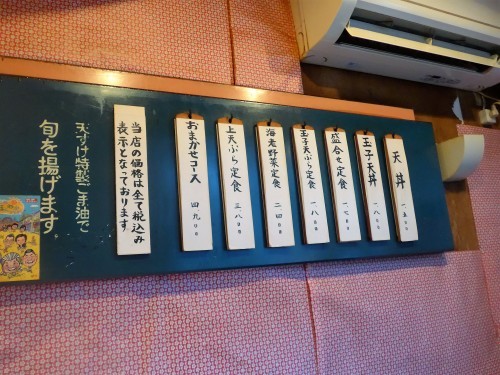 天丼 一、五〇〇
玉子天丼 一、八〇〇
盛合せ定食 一、七〇〇
玉子天ぷら定食 一、八〇〇
海老野菜定食 二、四〇〇
上天ぷら定食 三、八〇〇
おまかせコース 四、九〇〇
当店の価格は全て税込み
表示となっております。
天すけ特製ごま油で
旬を揚げます。